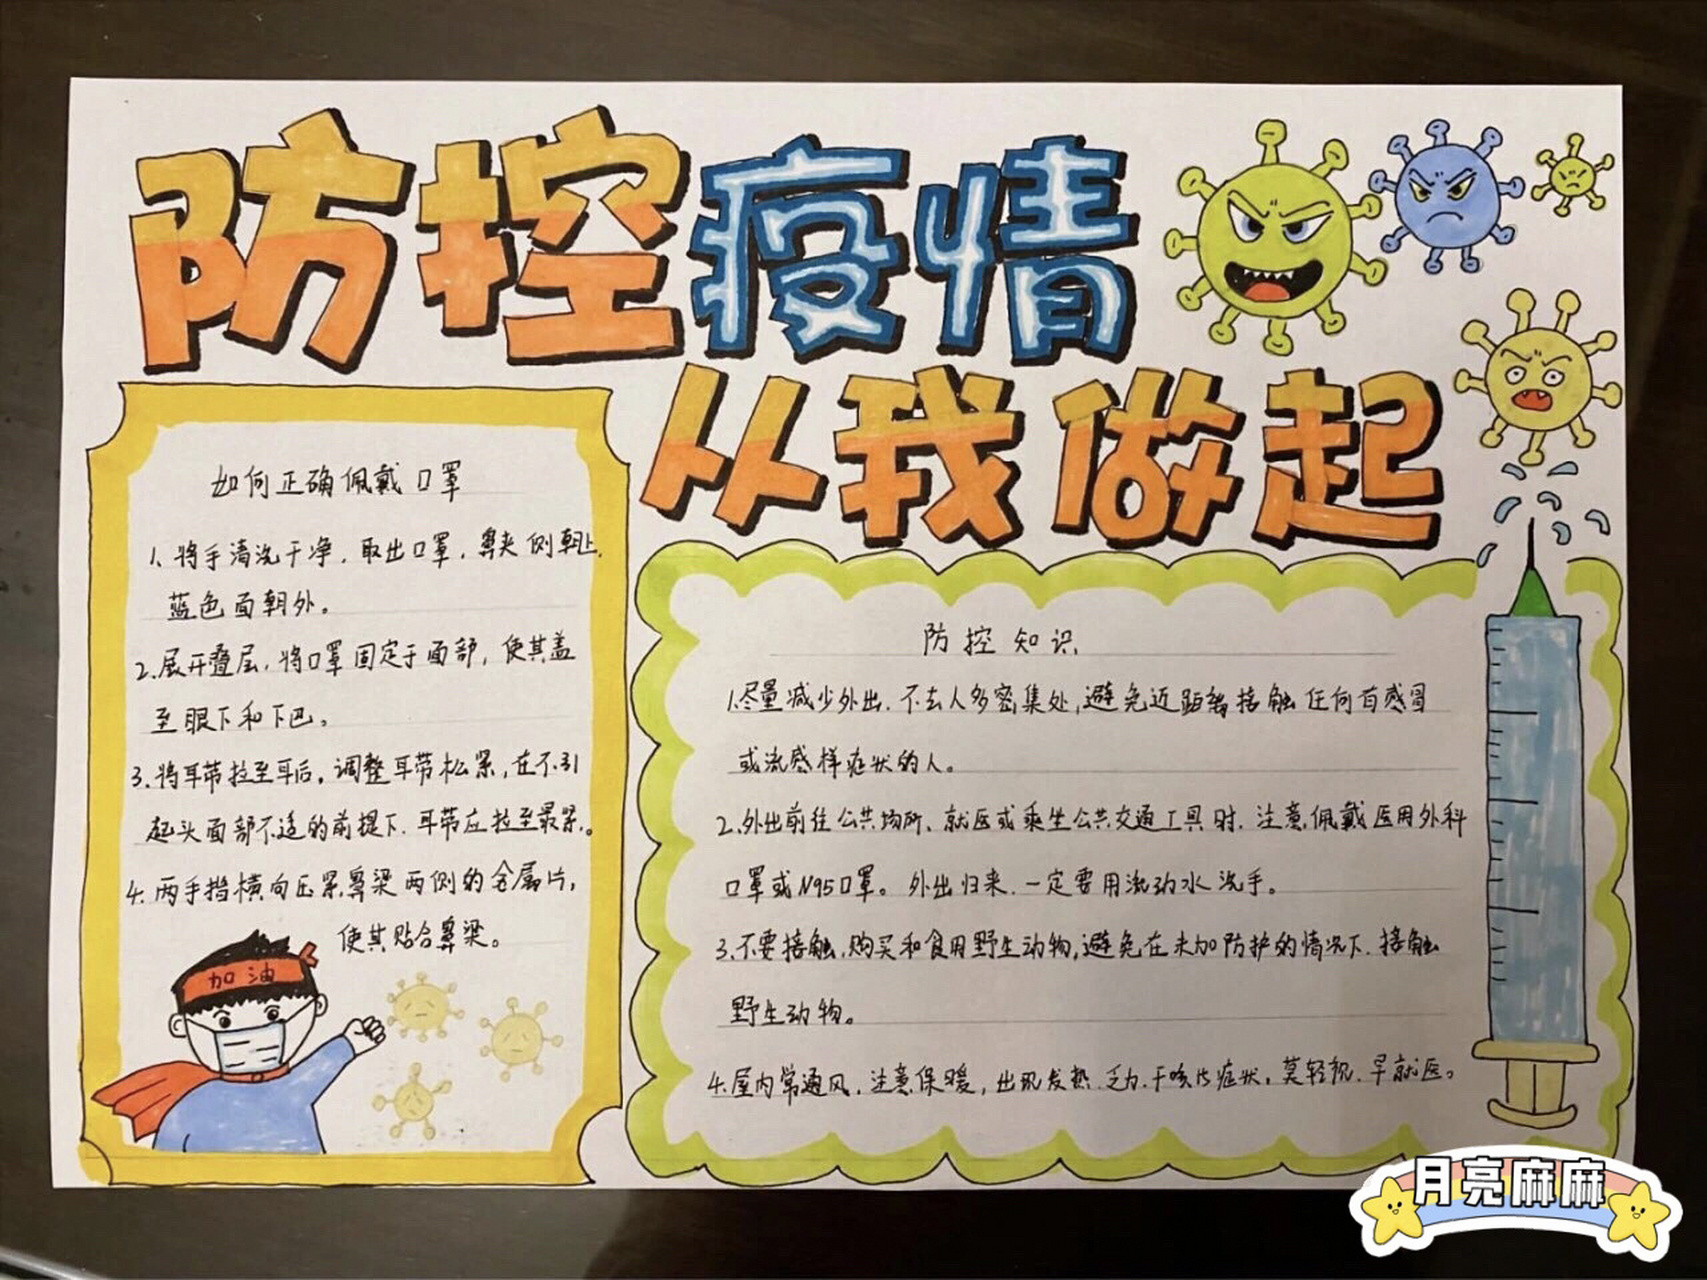 防控疫情
从我做起
如何正确佩戴口罩
1.将手清洗干净,取出口罩,鼻夹侧朝上,
蓝色面朝外。
2.展开叠层,将口罩固定于面部,使其盖
至眼下和下巴。
3.将耳带拉至耳后,调整耳带松紧,在不引
起头面部不适的前提下,耳带应拉至最紧。
4.两手指横向压紧鼻梁两侧的金属片,
使其贴合鼻梁。
加油
防控知识
1.尽量减少外出,不去人多密集处,避免近距离接触任何有感冒
或流感样症状的人。
2.外出前往公共场所、就医或乘坐公共交通工具时,注意佩戴医用外科
口罩或N95口罩。外出归来,一定要用流动水洗手。
3.不要接触,购买和食用野生动物,避免在未加防护的情况下,接触
野生动物。
4.屋内常通风,注意保暖,出现发热、乏力、干咳片症状,莫轻视,早就医。
月亮麻麻